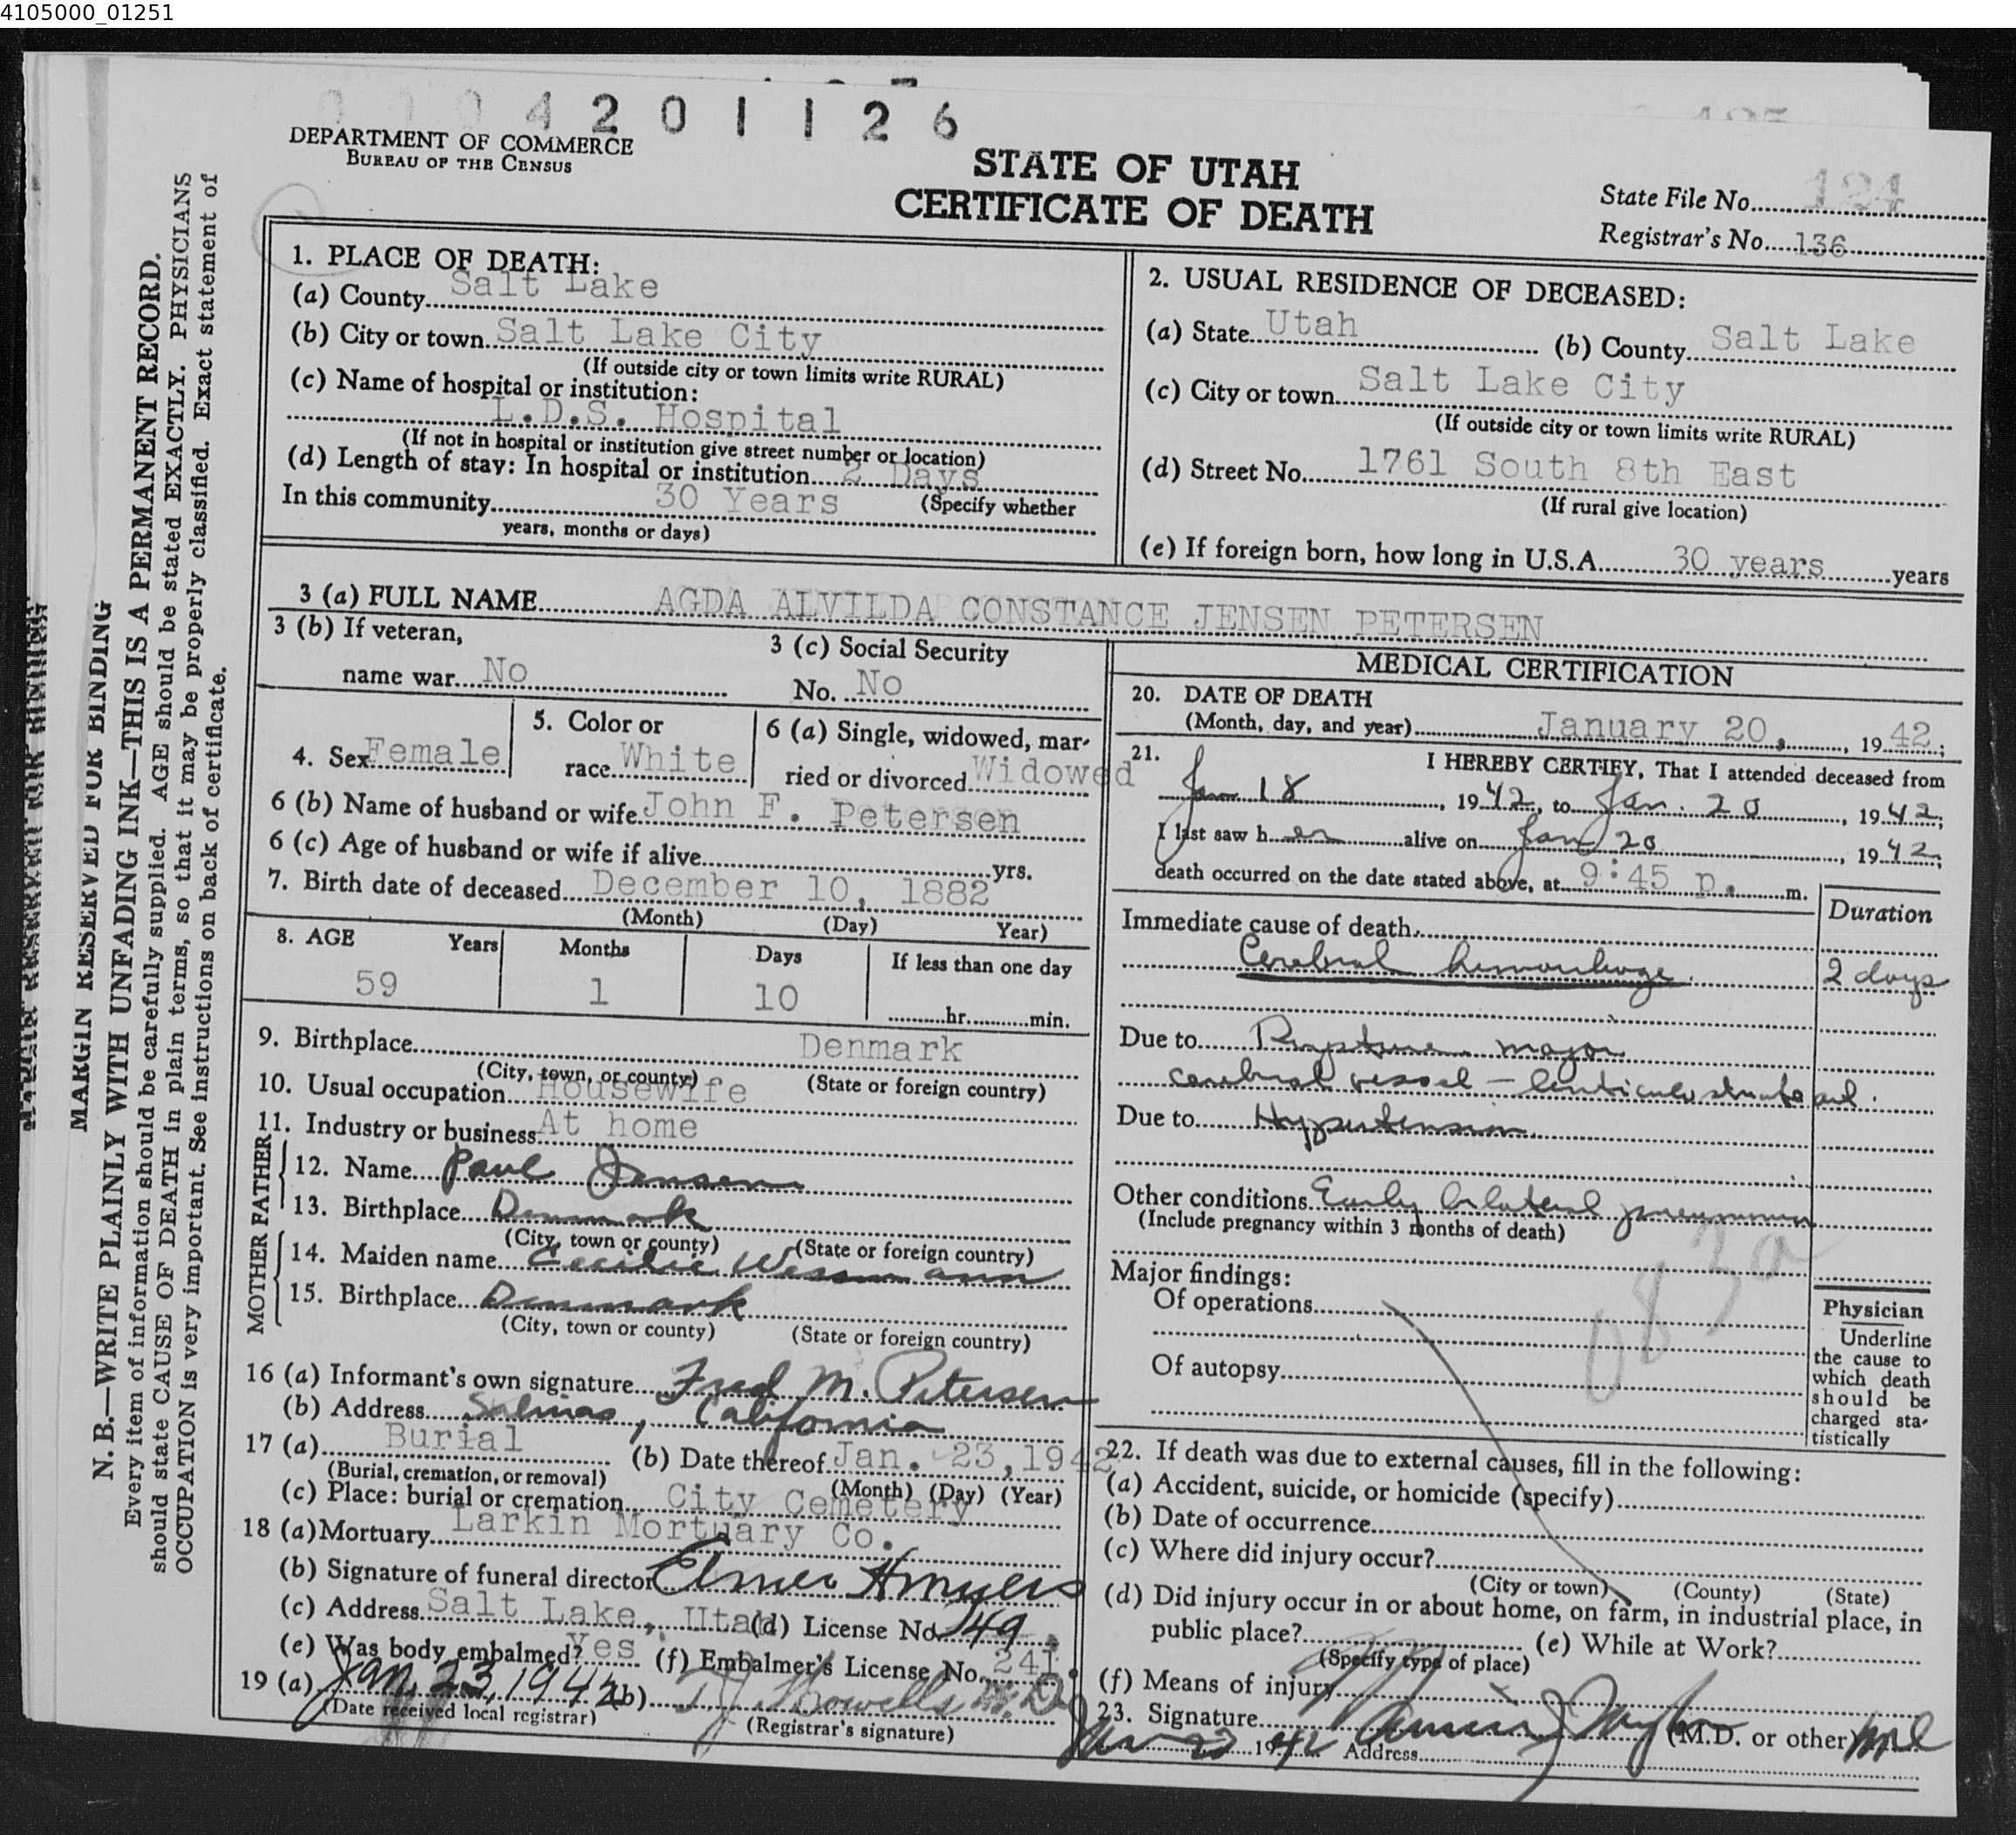 4105000_01251
0004201126
DEPARTMENT OF COMMERCE
BUREAU OF THE CENSUS
STATE OF UTAH
CERTIFICATE OF DEATH
State File No. 124
Registrar's No. 136
MARGIN RESERVED FOR BINDING
N. B.—WRITE PLAINLY WITH UNFADING INK—THIS IS A PERMANENT RECORD.
Every item of information should be carefully supplied. AGE should be stated EXACTLY. PHYSICIANS
should state CAUSE OF DEATH in plain terms, so that it may be properly classified. Exact statement of
OCCUPATION is very important. See instructions on back of certificate.
1. PLACE OF DEATH:
(a) County Salt Lake
(b) City or town Salt Lake City
(If outside city or town limits write RURAL)
(c) Name of hospital or institution:
L.D.S. Hospital
(If not in hospital or institution give street number or location)
(d) Length of stay: In hospital or institution 2 Days
In this community 30 Years (Specify whether
years, months or days)
2. USUAL RESIDENCE OF DECEASED:
(a) State Utah (b) County Salt Lake
(c) City or town Salt Lake City
(If outside city or town limits write RURAL)
(d) Street No. 1761 South 8th East
(If rural give location)
(e) If foreign born, how long in U.S.A. 30 years years
3 (a) FULL NAME AGDA ALVILDA CONSTANCE JENSEN PETERSEN
3 (b) If veteran,
name war No
3 (c) Social Security
No. No
4. Sex Female
5. Color or
race White
6 (a) Single, widowed, mar-
ried or divorced Widowed
6 (b) Name of husband or wife John F. Petersen
6 (c) Age of husband or wife if alive yrs.
7. Birth date of deceased December 10, 1882
(Month) (Day) Year)
8. AGE Years Months Days If less than one day
59 1 10 hr. min.
9. Birthplace Denmark
(City, town, or county) (State or foreign country)
10. Usual occupation Housewife
11. Industry or business At home
FATHER
12. Name Paul Jensen
13. Birthplace Denmark
(City, town or county) (State or foreign country)
MOTHER
14. Maiden name Cecilie Wessmann
15. Birthplace Denmark
(City, town or county) (State or foreign country)
16 (a) Informant's own signature Fred M. Petersen
(b) Address Salinas, California
17 (a) Burial (b) Date thereof Jan. 23, 1942
(Burial, cremation, or removal) (Month) (Day) (Year)
(c) Place: burial or cremation City Cemetery
18 (a) Mortuary Larkin Mortuary Co.
(b) Signature of funeral director Elmer H Myers
(c) Address Salt Lake, Utah (d) License No. 149
(e) Was body embalmed? Yes (f) Embalmer's License No. 241.
19 (a) Jan. 23, 1942 (b) T J Howells M.D.
(Date received local registrar) (Registrar's signature)
MEDICAL CERTIFICATION
20. DATE OF DEATH
(Month, day, and year) January 20, 1942;
21. I HEREBY CERTIFY, That I attended deceased from
Jan 18, 1942, to Jan. 20, 1942;
I last saw her alive on Jan 20, 1942;
death occurred on the date stated above, at 9:45 p. m.
Duration
Immediate cause of death
Cerebral hemorrhage. 2 days
Due to Rupture major
cerebral vessel – lenticulo striate art.
Due to Hypertension
Other conditions Early bilateral pneumonia
(Include pregnancy within 3 months of death)
083a
Major findings:
Of operations
Of autopsy
Physician
Underline
the cause to
which death
should be
charged sta-
tistically
22. If death was due to external causes, fill in the following:
(a) Accident, suicide, or homicide (specify)
(b) Date of occurrence
(c) Where did injury occur?
(City or town) (County) (State)
(d) Did injury occur in or about home, on farm, in industrial place, in
public place? (e) While at Work?
(Specify type of place)
(f) Means of injury
23. Signature (M.D. or other) MD
Jan 22 1942 Address